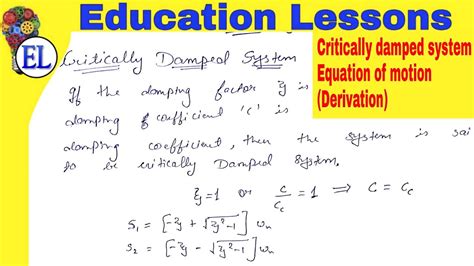 Education Lessons
EL
Critically damped system
Equation of motion
(Derivation)
Critically Damped System
If the damping factor ξ is
damping coefficient 'c' is
damping coefficient, then the system is sai
to be critically Damped System.
ξ=1 or c/c_c = 1 ⇒ C = C_c
S₁ = [-ξ + √(ξ²-1)] ω_n
S₂ = [-ξ - √(ξ²-1)] ω_n